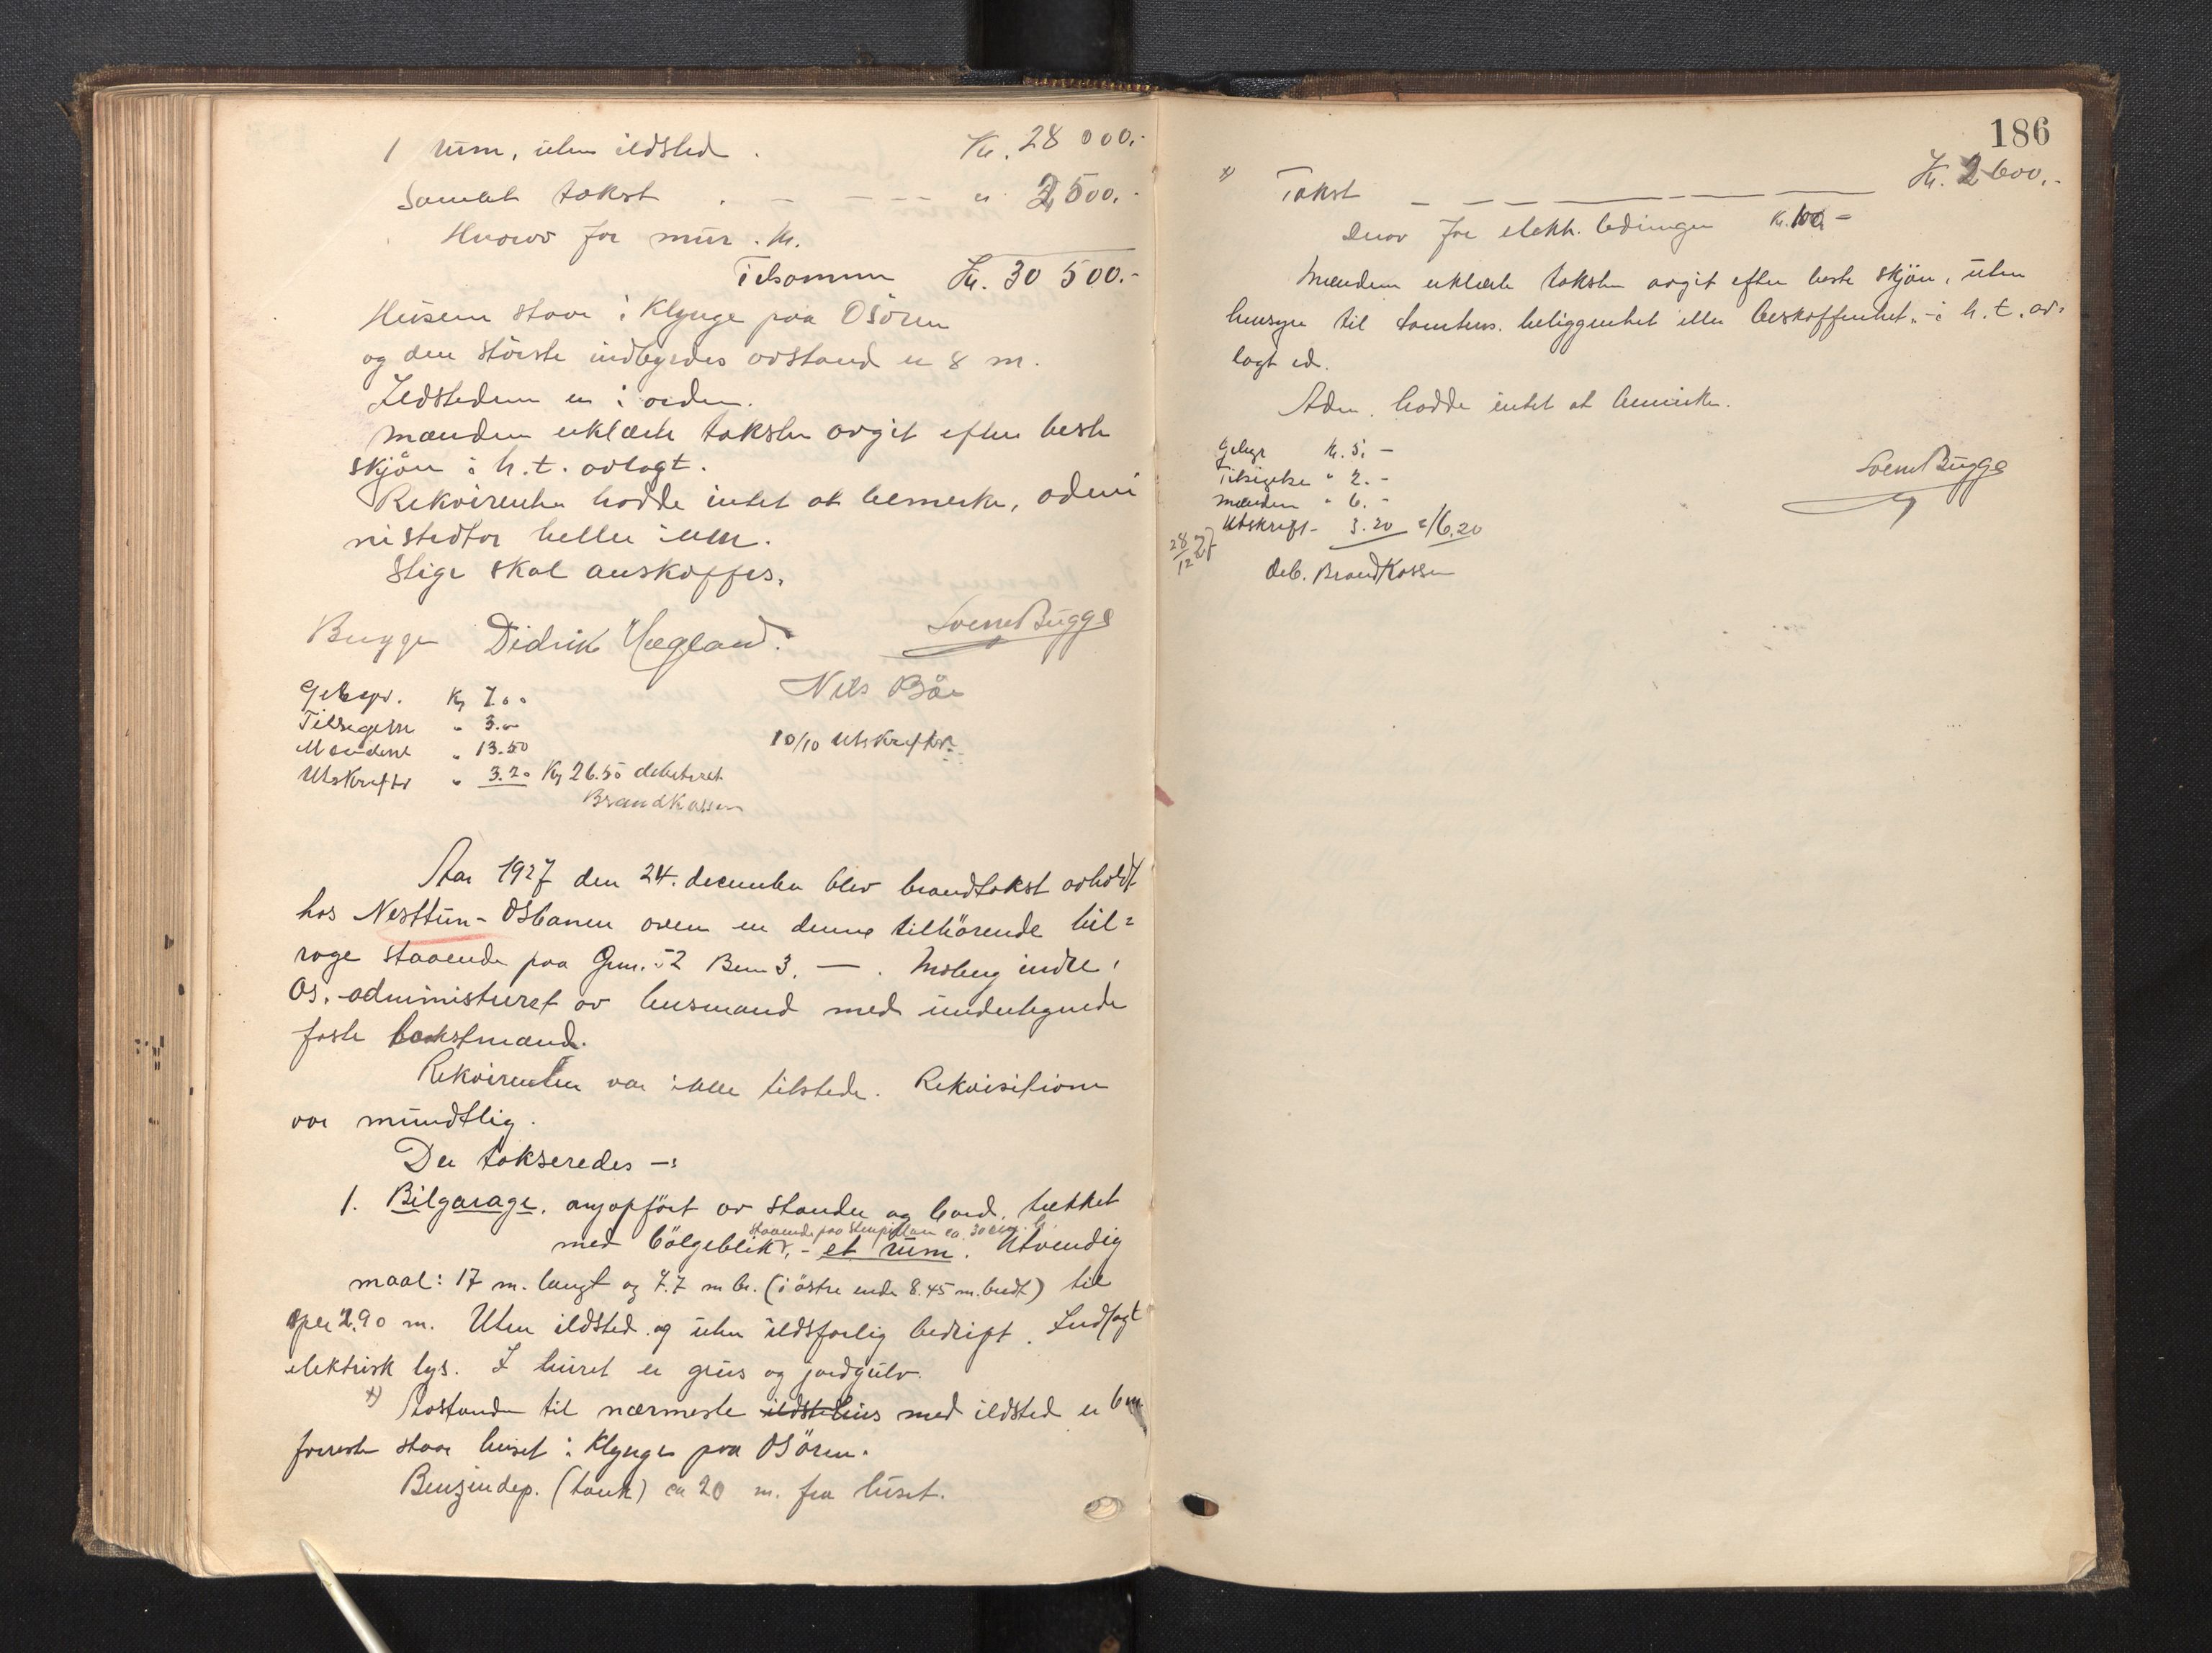 1 rum, uten ildsted . Kr. 28 000.-
Samlet takst . - - - - " 2500.-
Hvorav for mur. Kr.
Tilsammen Kr. 30 500.-
Husene staar i Klynge paa Osören
og den störste indbyrdes avstand er 8 m.
Ildstedene er i orden.
Mændene erklærte taksten avgit efter beste
skjön i h.t. avlagt.
Rekvirenten hadde intet at bemerke, admi
nistrator heller ikke.
Stige skal anskaffes.
Bugge Didrik Hegland. Sverre Bugge
Gebyr. Kr 7.00 Nils Böe
Tilsigelse " 3.00
Mændene " 13.50 10/10 Utskrifter
Utskrifter " 3.20 Kr 26.50 debiteret
Brandkassen
Aar 1927 den 24. december blev brandtakst avholdt
hos Nesttun-Osbanen over en denne tilhörende bil=
rage staaende paa Gnr. 52 Bnr 3. — . Moberg indre,
Os. administreret av lensmand med undertegnede
faste takstmænd.
Rekvirenten var ikke tilstede. Rekvisitionen
var mundtlig.
Der takseredes —:
1. Bilgarage, nyopfört av stender og bord, tækket
staaende paa stenpillarer ca. 30 cm. h.
med bölgeblik, - et rum. Utvendig
maal: 17 m. langt og 7.7 m br. (i östre ende 8.45 m. bredt) til
2.90 m. Uten ildsted og uten ildsfarlig bedrift. Indlagt
elektrisk lys. I huset er grus og jordgulv.
x) Avstanden til nærmeste ildste hus med ildsted er 6 m
forresten staar huset i Klynge paa Osören.
Benzindep. (tank) ca 20 m. fra huset.
186
x) Takst — — — — — — Kr. 2600.-
Derav for elektr. ledninger Kr. 100,-
Mændene erklærte taksten avgit efter beste skjön, uten
hensyn til tomtens beliggenhet eller beskaffenhet, - i h.t. av-
lagt ed.
Adm. hadde intet at bemerke.
Gebyr kr. 5. - Sverre Bugge
Tilsigelse " 2. -
Mændene " 6. -
Utskrift - 3.20 = 16.20
28/12 27
deb. Brandkassen